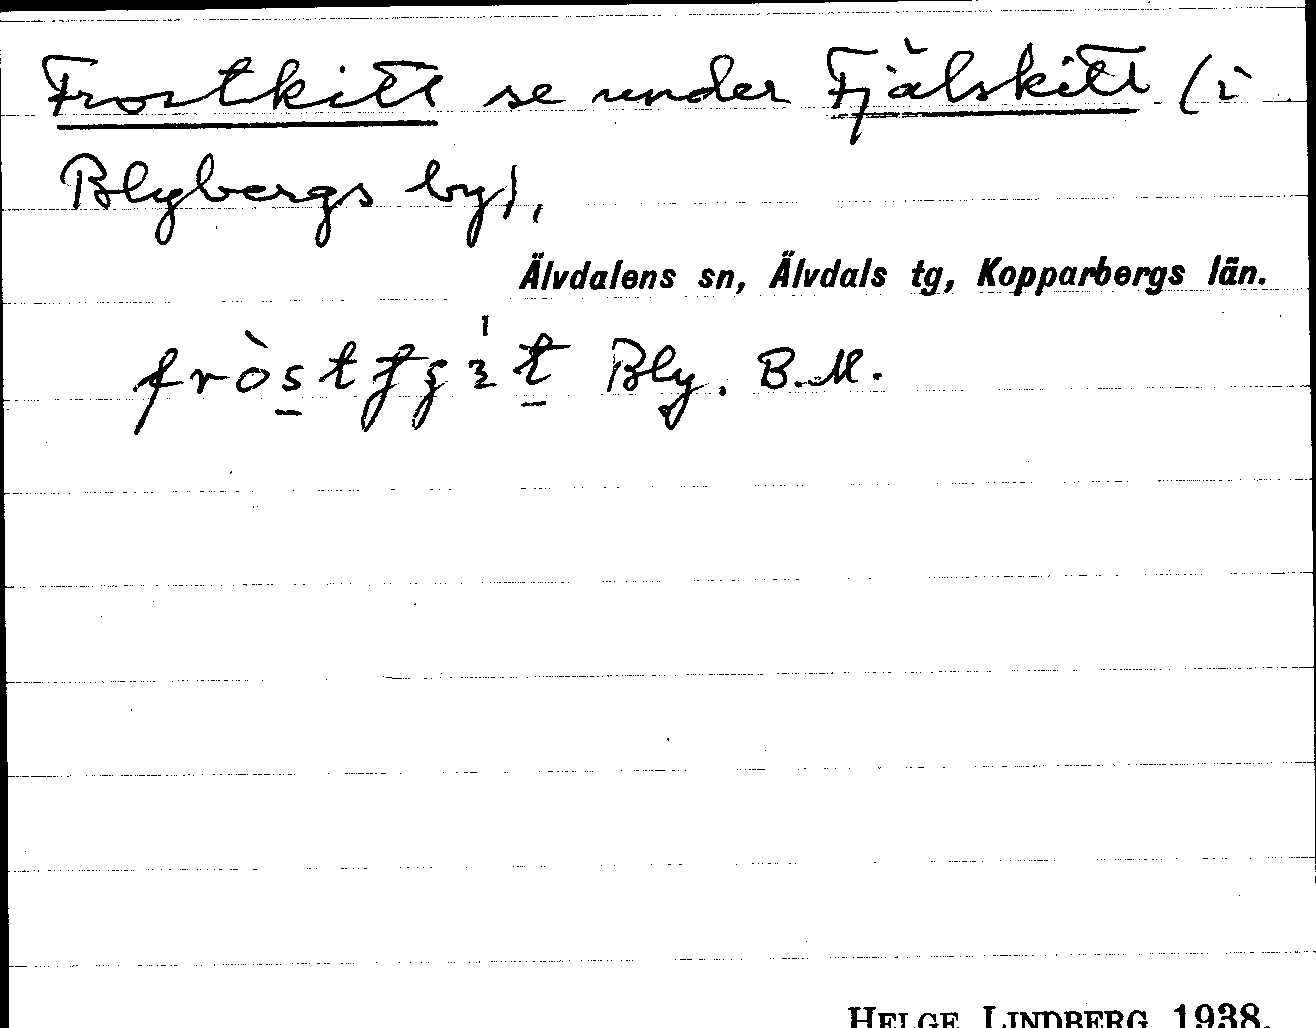 Frostkitt se under Fjälskitt (i
Blybergs by),
Älvdalens sn, Älvdals tg, Kopparbergs län.
Bly. B.M.
HELGE LINDBERG 1938.